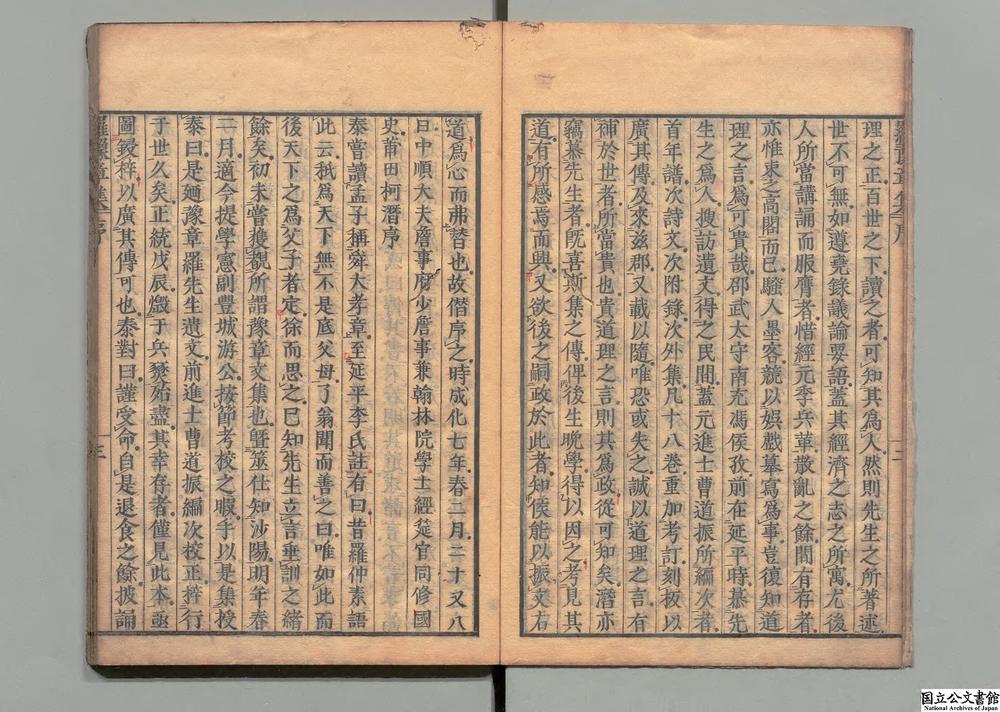 理之正百世之下讀之者可知其為人然則先生之所著述
世不可無如遵堯錄議論要語蓋其經濟之志之所寓尤後
人所當講誦而服膺者惜經元季兵革散亂之餘間有存者
亦惟束之高閣而已騷人墨客競以娛戲摹寫為事豈復知道
理之言為可貴哉邵武太守南充馮侯孜前在延平時慕先
生之為人搜訪遺文得之民間蓋元進士曹道振所編次者
首年譜次詩文次附錄次外集凡十八卷重加考訂刻板以
廣其傳及來茲郡又載以隨唯恐或失之誠以道理之言有
補於世者所當貴也貴道理之言則其為政從可知矣潛亦
竊慕先生者既喜斯集之傳俾後生晚學得以因之考見其
道有所感焉而興又欲後之嗣政於此者知侯能以振文右
道為心而弗替也故僭序之時成化七年春二月二十又八
日中順大夫詹事府少詹事兼翰林院學士經筵官同修國
史莆田柯潛序
泰嘗讀孟子稱舜大孝章至延平李氏註有曰昔羅仲素語
此云秪為天下無不是底父母了翁聞而善之曰唯如此而
後天下之為父子者定徐而思之已知先生立言垂訓之緒
餘矣初未嘗獲覩所謂豫章文集也曁筮仕知沙陽明年春
二月適今提學憲副豐城游公按節考校之暇手以是集授
泰曰是廼豫章羅先生遺文前進士曹道振編次校正梓行
于世久矣正統戊辰燬于兵燹殆盡其幸存者僅見此本亟
圖鋟梓以廣其傳可也泰對曰謹受命自是退食之餘披誦
羅豫章集序
二
三
国立公文書館
National Archives of Japan